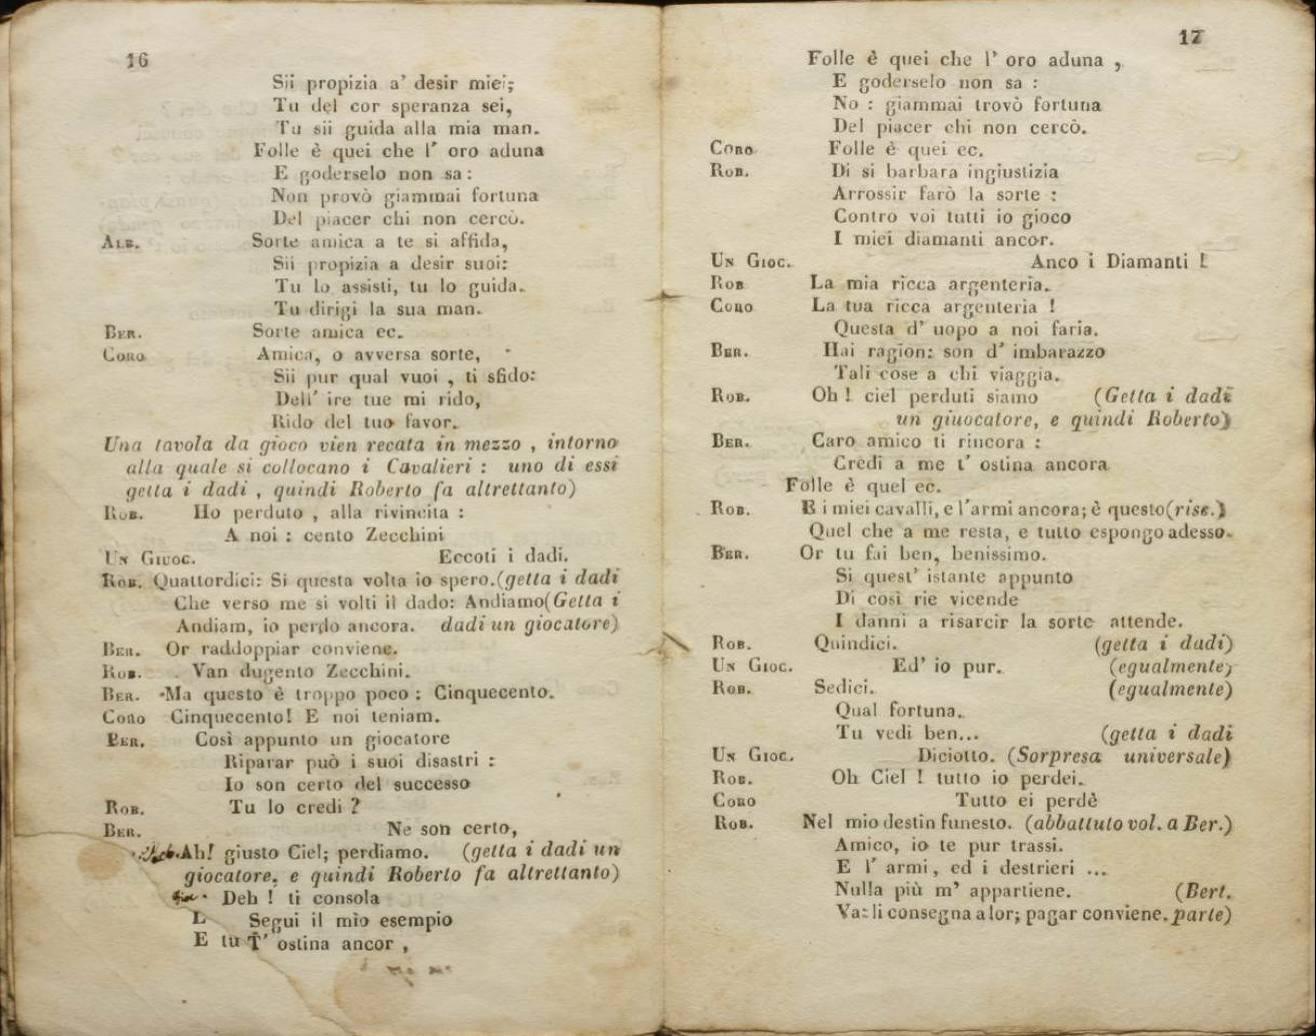 16
Sii propizia a' desir miei;
Tu del cor speranza sei,
Tu sii guida alla mia man.
Folle è quei che l' oro aduna
E goderselo non sa :
Non provò giammai fortuna
Del piacer chi non cercò.
ALB. Sorte amica a te si affida,
Sii propizia a desir suoi:
Tu lo assisti, tu lo guida.
Tu dirigi la sua man.
BER. Sorte amica ec.
CORO Amica, o avversa sorte,
Sii pur qual vuoi , ti sfido:
Dell' ire tue mi rido,
Rido del tuo favor.
Una tavola da gioco vien recata in mezzo , intorno
alla quale si collocano i Cavalieri : uno di essi
getta i dadi , quindi Roberto fa altrettanto)
ROB. Ho perduto , alla rivincita :
A noi : cento Zecchini
UN GIUOC. Eccoti i dadi.
ROB. Quattordici: Si questa volta io spero.(getta i dadi
Che verso me si volti il dado: Andiamo(Getta i
Andiam, io perdo ancora. dadi un giocatore)
BER. Or raddoppiar conviene.
ROB. Van dugento Zecchini.
BER. Ma questo è troppo poco : Cinquecento.
CORO Cinquecento! E noi teniam.
BER. Così appunto un giocatore
Riparar può i suoi disastri :
Io son certo del successo
ROB. Tu lo credi ?
BER. Ne son certo,
Ah! giusto Ciel; perdiamo. (getta i dadi un
giocatore, e quindi Roberto fa altrettanto)
Deh ! ti consola
Segui il mio esempio
E tu T' ostina ancor ,
17
Folle è quei che l' oro aduna ,
E goderselo non sa :
No : giammai trovò fortuna
Del piacer chi non cercò.
CORO Folle è quei ec.
ROB. Di si barbara ingiustizia
Arrossir farò la sorte :
Contro voi tutti io gioco
I miei diamanti ancor.
UN GIOC. Anco i Diamanti !
ROB La mia ricca argenteria.
CORO La tua ricca argenteria !
Questa d' uopo a noi faria.
BER. Hai ragion: son d' imbarazzo
Tali cose a chi viaggia.
ROB. Oh ! ciel perduti siamo (Getta i dadi
un giuocatore, e quindi Roberto)
BER. Caro amico ti rincora :
Credi a me t' ostina ancora
Folle è quel ec.
ROB. E i miei cavalli, e l'armi ancora; è questo(rise.)
Quel che a me resta, e tutto espongo adesso.
BER. Or tu fai ben, benissimo.
Si quest' istante appunto
Di così rie vicende
I danni a risarcir la sorte attende.
ROB. Quindici. (getta i dadi)
UN GIOC. Ed' io pur. (egualmente)
ROB. Sedici. (egualmente)
Qual fortuna.
Tu vedi ben... (getta i dadi
UN GIOC. Diciotto. (Sorpresa universale)
ROB. Oh Ciel ! tutto io perdei.
CORO Tutto ei perdè
ROB. Nel mio destin funesto. (abbattuto vol. a Ber.)
Amico, io te pur trassi.
E l' armi, ed i destrieri ...
Nulla più m' appartiene. (Bert.
Va: li consegna a lor; pagar conviene. parte)